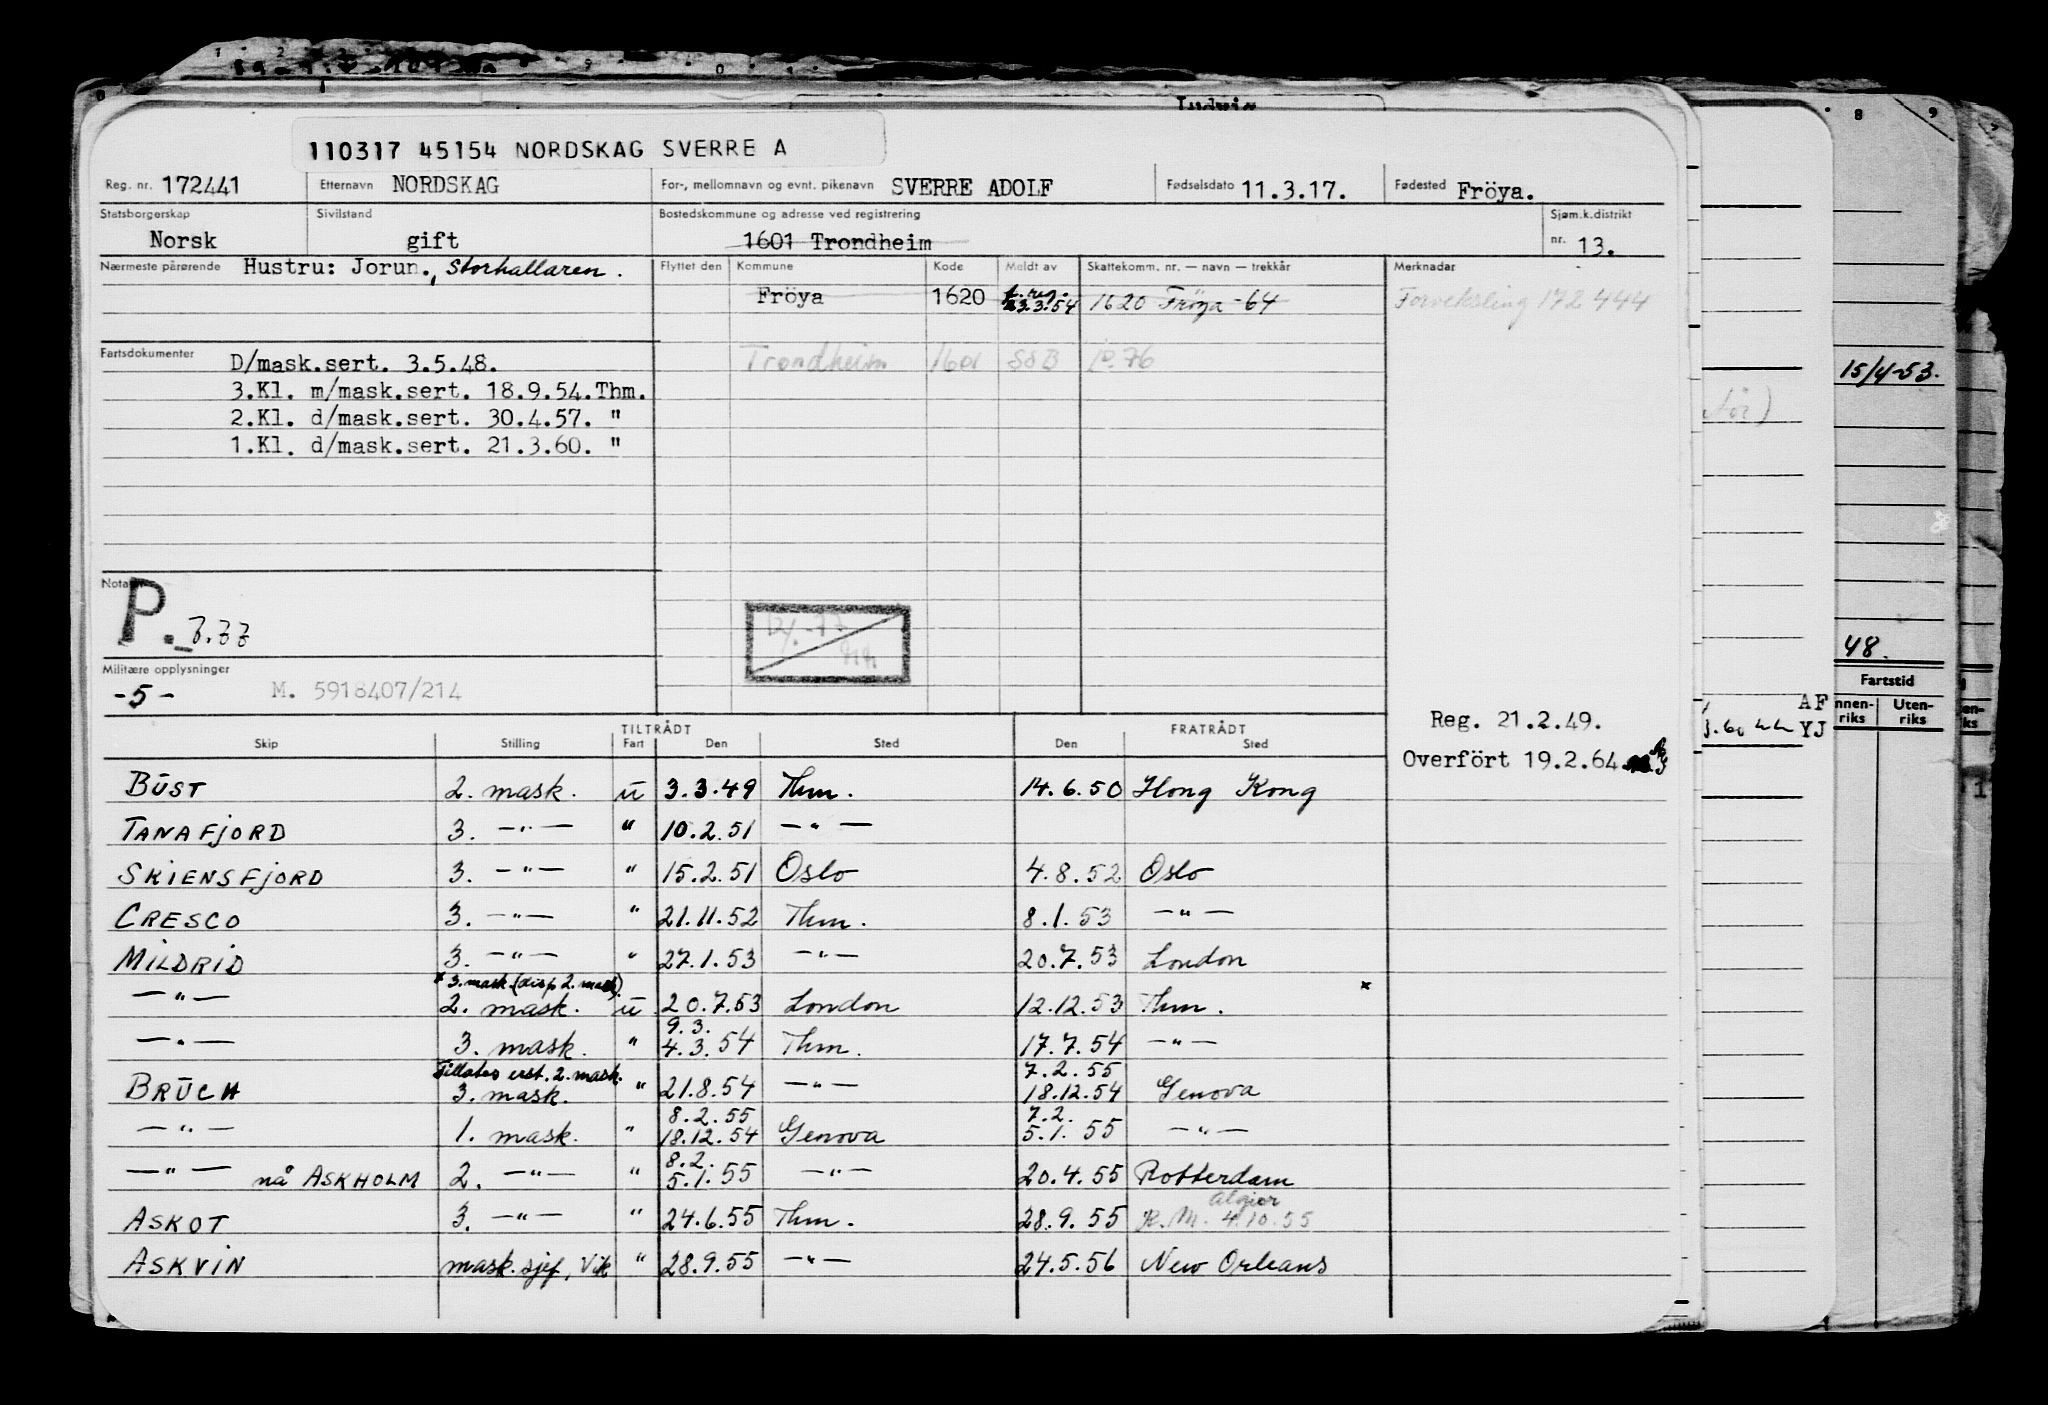 110317 45154 NORDSKAG SVERRE A
Reg. nr. 172441 Etternavn NORDSKAG For-, mellomnavn og evnt. pikenavn SVERRE ADOLF Fødselsdato 11.3.17. Fødested Fröya.
Statsborgerskap Sivilstand Bostedskommune og adresse ved registrering Sjøm.k.distrikt
Norsk gift 1601 Trondheim nr. 13.
Nærmeste pårørende Hustru: Jorun., Storhallaren. Flyttet den Kommune Kode Meldt av Skattekomm. nr. — navn — trekkår Merknadar
Fröya 1620 f. reg. 23.3.54 1620 Fröya -64 Forveksling 172 444
Fartsdokumenter D/mask.sert. 3.5.48. Trondheim 1601 SSB p.76
3.Kl. m/mask.sert. 18.9.54.Thm.
2.Kl. d/mask.sert. 30.4.57. "
1.Kl. d/mask.sert. 21.3.60. "
P. 7.77
Militære opplysninger
-5- M. 5918407/214
Reg. 21.2.49.
Overfört 19.2.64
TILTRÅDT FRATRÅDT
Skip Stilling Fart Den Sted Den Sted
BUST 2. mask. u 3.3.49 Thm. 14.6.50 Hong Kong
TANAFJORD 3. —"— " 10.2.51 —"—
SKIENSFJORD 3. —"— " 15.2.51 Oslo 4.8.52 Oslo
CRESCO 3. —"— " 21.11.52 Thm. 8.1.53 —"—
MILDRID 3. —"— " 27.1.53 —"— 20.7.53 London
x 3. mask. (disp 2. mask). x
—"— 2. mask. u 20.7.53 London 12.12.53 Thm.
9.3.
—"— 3. mask. " 4.3.54 Thm. 17.7.54 —"—
Tillates erst. 2. mask. 7.2.55
BRUCH 3. mask. " 21.8.54 —"— 18.12.54 Genova
8.2.55 7.2.
—"— 1. mask. " 18.12.54 Genova 5.1.55 —"—
8.2.
—"— nå ASKHOLM 2. —"— " 5.1.55 —"— 20.4.55 Rotterdam
Algier
ASKOT 3. —"— " 24.6.55 Thm. 28.9.55 R.M. 4.10.55
ASKVIN mask.sjef, Vik " 28.9.55 —"— 24.5.56 New Orleans
8 9
15/4-53.
48.
Fartstid
Uten-
riks riks
AF
YJ
1